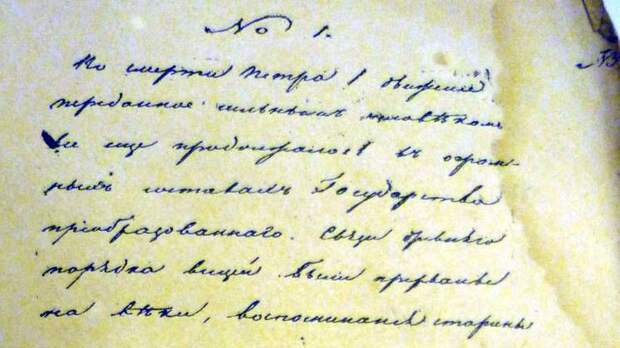 No 1.
По смерти Петра I движение
переданное сильнымъ человѣкомъ
все еще продолжалось въ огром-
ныхъ составахъ Государства
преобразованнаго. Связи древняго
порядка вещей были прерваны
на вѣки, воспоминания старины